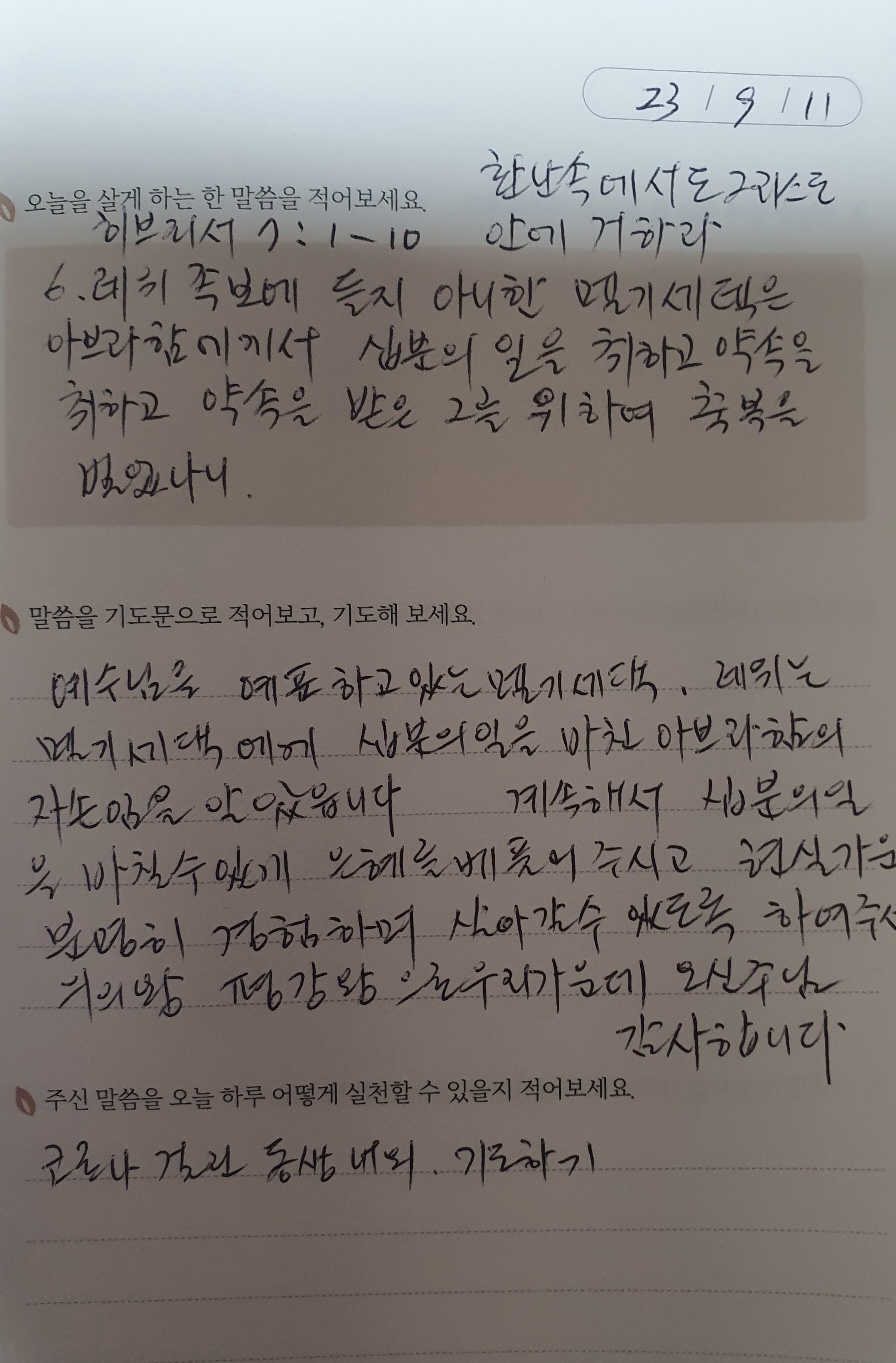 23 / 9 / 11
환난속에서도 그리스도
오늘을 살게 하는 한 말씀을 적어보세요.
히브리서 7 : 1 - 10 안에 거하라
6. 레위 족보에 들지 아니한 멜기세덱은
아브라함에게서 십분의 일을 취하고 약속을
취하고 약속을 받은 그를 위하여 축복을
빌었나니.
말씀을 기도문으로 적어보고, 기도해 보세요.
예수님을 예표하고 있는 멜기세댁. 레위는
멜기세댁에게 십분의일을 바친 아브라함의
자손임을 알았읍니다 계속해서 십분의일
을 바칠수 있게 은혜를 베풀어 주시고 현실가운
분명히 경험하며 살아갈수 있도록 하여주시
의의왕 평강왕으로 우리가운데 오신주님
감사합니다.
주신 말씀을 오늘 하루 어떻게 실천할 수 있을지 적어보세요.
코로나 걸린 동생 내외. 기도하기